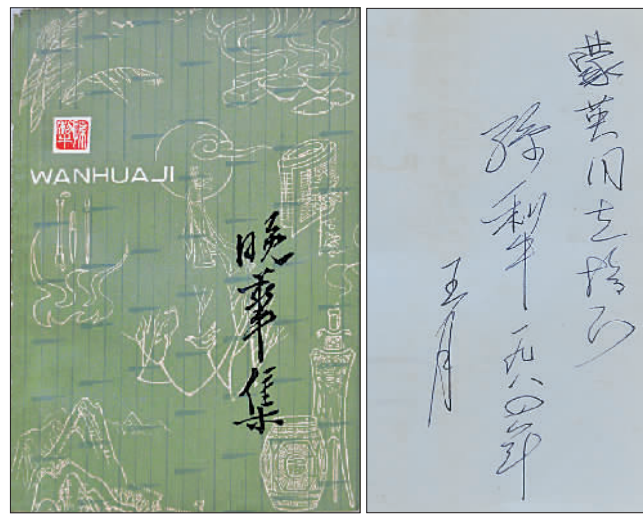 孙犁
WANHUAJI
晚華集
蒙英同志指正
孙犁 一九八四年
五月